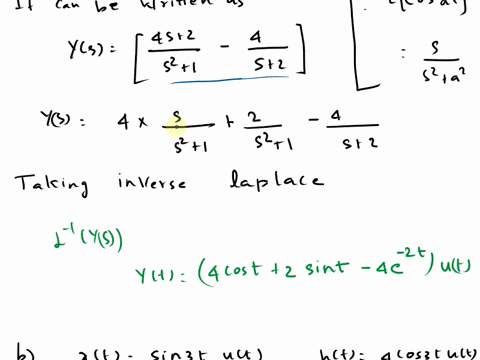 It can be written as
Y(s) : [ (4s+2)/(s²+1) - 4/(s+2) ]
: s/(s²+a²)
Y(s) : 4 × s/(s²+1) + 2/(s²+1) - 4/(s+2)
Taking inverse laplace
L⁻¹(Y(s))
Y(t) : (4 cost + 2 sint - 4e^(-2t)) u(t)
b) : sin3t u(t) h(t) : 4 cos3t u(t)